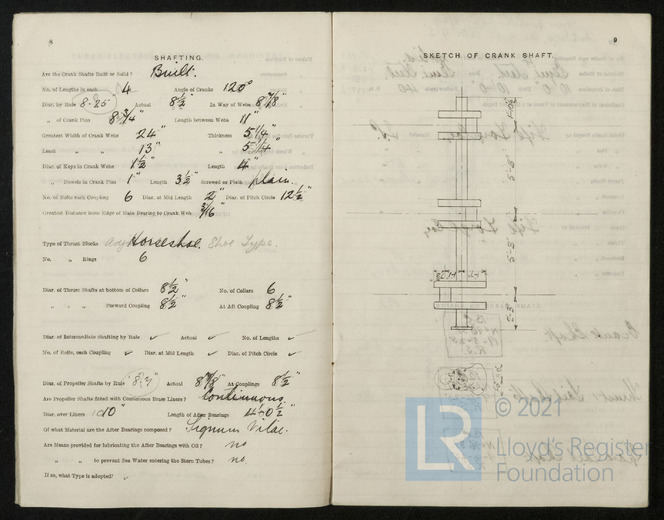 8
SHAFTING.
Are the Crank Shafts Built or Solid? Built.
No. of Lengths in each 4 Angle of Cranks 120°
Diar. by Rule 8.25" Actual 8½" In Way of Webs 8⅞"
" of Crank Pins 8¾" Length between Webs 11"
Greatest Width of Crank Webs 24" Thickness 5¼"
Least " " 13" " 5¼"
Diar. of Keys in Crank Webs 1½" Length 4"
" Dowels in Crank Pins 1" Length 3½" Screwed or Plain plain.
No. of Bolts each Coupling 6 Diar. at Mid Length 2" Diar. of Pitch Circle 12½"
Greatest Distance from Edge of Main Bearing to Crank Web 3/16"
Type of Thrust Blocks Adj Horseshoe. Shoe Type.
No. " Rings 6
Diar. of Thrust Shafts at bottom of Collars 8½" No. of Collars 6
" " Forward Coupling 8½" At Aft Coupling 8½"
Diar. of Intermediate Shafting by Rule ✓ Actual ✓ No. of Lengths ✓
No. of Bolts, each Coupling ✓ Diar. at Mid Length ✓ Diar. of Pitch Circle ✓
Diar. of Propeller Shafts by Rule Actual 8⅞" At Couplings 8½"
Are Propeller Shafts fitted with Continuous Brass Liners? Continuous
Diar. over Liners 10" Length of After Bearings 4'-0½"
Of what Material are the After Bearings composed? Lignum Vitae.
Are Means provided for lubricating the After Bearings with Oil? no
" " to prevent Sea Water entering the Stern Tubes? no
If so, what Type is adopted?
9
SKETCH OF CRANK SHAFT.
5'-8"
5'-8"
© 2021
Lloyd's Register
Foundation
LR